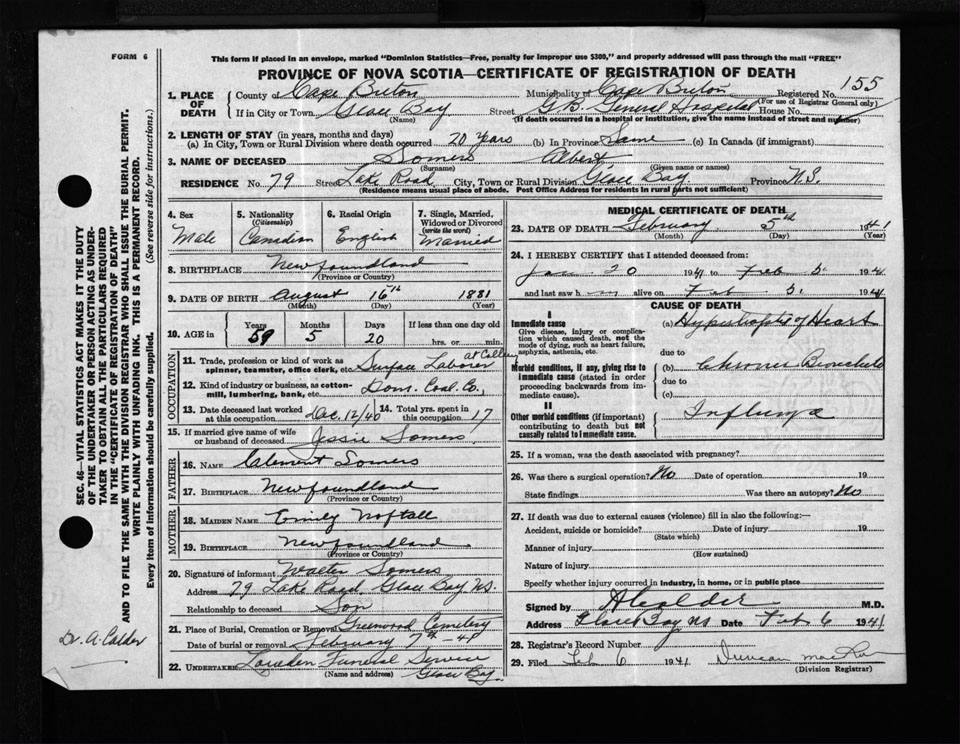 FORM 6
This form if enclosed in an envelope, marked "Dominion Statistics—Free, penalty for improper use $300," and properly addressed will pass through the mail "FREE"
PROVINCE OF NOVA SCOTIA—CERTIFICATE OF REGISTRATION OF DEATH
1. PLACE OF DEATH
County of Cape Breton Municipality of Cape Breton Registered No. 155
(For use of Registrar General only)
If in City or Town Glace Bay Street G.B. General Hospital House No.
(Name) (If death occurred in a hospital or institution, give the name instead of street and number)
2. LENGTH OF STAY (in years, months and days)
(a) In City, Town or Rural Division where death occurred 20 years (b) In Province Same (c) In Canada (if immigrant)
3. NAME OF DECEASED Somers Albert
(Surname) (Given name or names)
RESIDENCE No. 79 Street Lake Road City, Town or Rural Division Glace Bay Province N.S.
(Residence means usual place of abode. Post Office Address for Residents in rural parts not sufficient)
4. Sex Male
5. Nationality (Citizenship) Canadian
6. Racial Origin English
7. Single, Married, Widowed or Divorced (write the word) Married
8. BIRTHPLACE Newfoundland
(Province or Country)
9. DATE OF BIRTH August 16th 1881
(Month) (Day) (Year)
10. AGE in Years 59 Months 5 Days 20 If less than one day old hrs. or min.
OCCUPATION
11. Trade, profession or kind of work as spinner, teamster, office clerk, etc. Surface Laborer at Colliery
12. Kind of industry or business, as cotton-mill, lumbering, bank, etc. Dom. Coal Co.
13. Date deceased last worked at this occupation Dec. 12/40 14. Total yrs. spent in this occupation 17
15. If married give name of wife or husband of deceased Jessie Somers
FATHER
16. NAME Clement Somers
17. BIRTHPLACE Newfoundland
(Province or Country)
MOTHER
18. MAIDEN NAME Emily Noftall
19. BIRTHPLACE Newfoundland
(Province or Country)
20. Signature of informant Walter Somers
Address 79 Lake Road Glace Bay N.S.
Relationship to deceased Son
21. Place of Burial, Cremation or Removal Greenwood Cemetery
Date of burial or removal February 7th - 41
22. UNDERTAKER Funeral Service
(Name and address) Glace Bay
MEDICAL CERTIFICATE OF DEATH
23. DATE OF DEATH February 5th 1941
(Month) (Day) (Year)
24. I HEREBY CERTIFY that I attended deceased from:
Jan 20 1941 to Feb 5. 1941
and last saw h im alive on Feb 5. 1941
CAUSE OF DEATH
I
Immediate cause
Give disease, injury or complication which caused death, not the mode of dying, such as heart failure, asphyxia, asthenia, etc.
(a) of Heart
due to
Morbid conditions, if any, giving rise to immediate cause (stated in order proceeding backwards from immediate cause).
(b) Chronic Bronchitis
due to
(c)
II
Other morbid conditions (if important) contributing to death but not causally related to immediate cause.
Influenza
25. If a woman, was the death associated with pregnancy?
26. Was there a surgical operation? No Date of operation 19
State findings Was there an autopsy? No
27. If death was due to external causes (violence) fill in also the following:—
Accident, suicide or homicide? Date of injury 19
(State which)
Manner of injury
(How sustained)
Nature of injury
Specify whether injury occurred in industry, in home, or in public place
Signed by A Calder M.D.
Address Glace Bay NS Date Feb 6 1941
28. Registrar's Record Number 7
29. Filed Feb 6 1941 Duncan
(Division Registrar)
SEC. 46—VITAL STATISTICS ACT MAKES IT THE DUTY
OF THE UNDERTAKER OR PERSON ACTING AS UNDER-
TAKER TO OBTAIN ALL THE PARTICULARS REQUIRED
IN THE "CERTIFICATE OF REGISTRATION OF DEATH"
AND TO FILE THE SAME WITH THE DIVISION REGISTRAR WHO SHALL ISSUE THE BURIAL PERMIT.
WRITE PLAINLY WITH UNFADING INK. THIS IS A PERMANENT RECORD.
Every item of information should be carefully supplied. (See reverse side for instructions.)
Dr. A. Calder